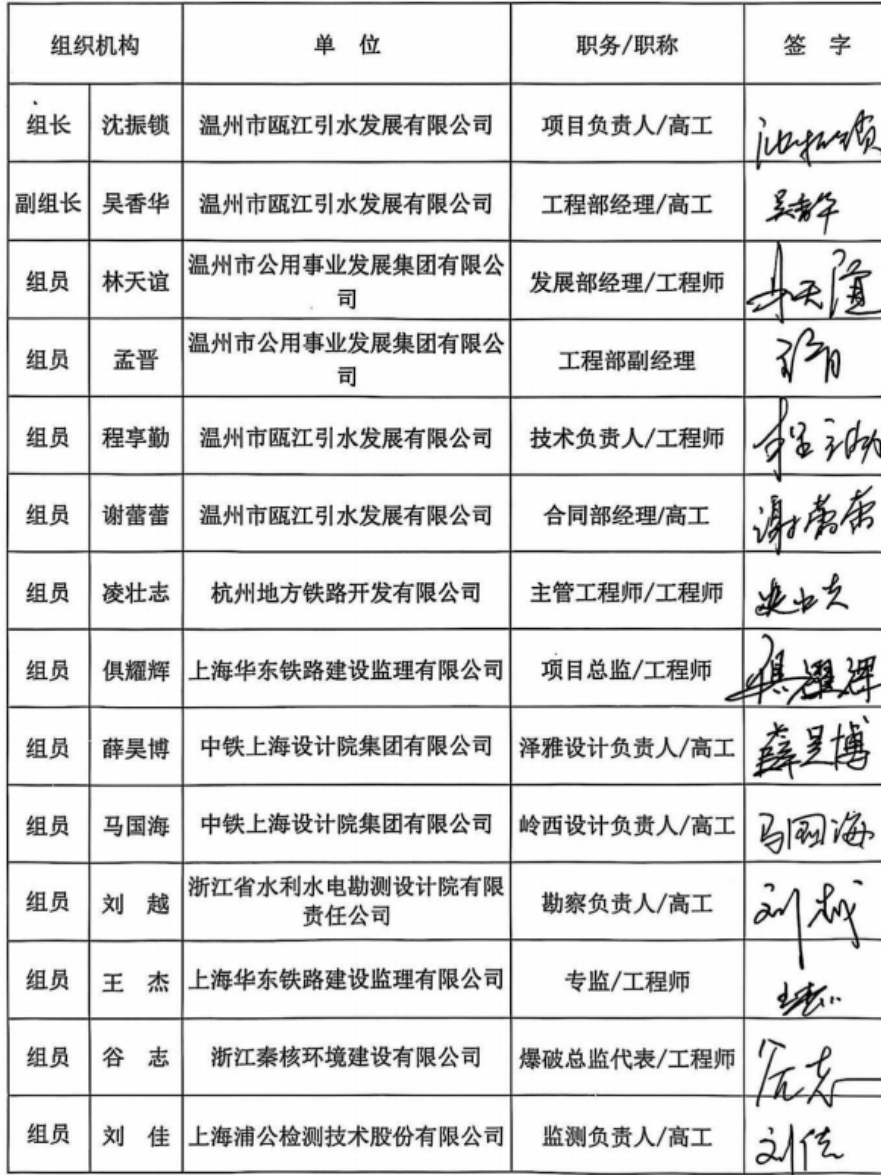 组织机构 单 位 职务/职称 签 字
组长 沈振锁 温州市瓯江引水发展有限公司 项目负责人/高工 沈振锁
副组长 吴香华 温州市瓯江引水发展有限公司 工程部经理/高工 吴香华
组员 林天谊 温州市公用事业发展集团有限公 发展部经理/工程师 林天谊
司
组员 孟晋 温州市公用事业发展集团有限公 工程部副经理
司
组员 程享勤 温州市瓯江引水发展有限公司 技术负责人/工程师 程享勤
组员 谢蕾蕾 温州市瓯江引水发展有限公司 合同部经理/高工 谢蕾蕾
组员 凌壮志 杭州地方铁路开发有限公司 主管工程师/工程师 凌壮志
组员 俱耀辉 上海华东铁路建设监理有限公司 项目总监/工程师 俱耀辉
组员 薛昊博 中铁上海设计院集团有限公司 泽雅设计负责人/高工 薛昊博
组员 马国海 中铁上海设计院集团有限公司 岭西设计负责人/高工 马国海
组员 刘 越 浙江省水利水电勘测设计院有限 勘察负责人/高工 刘越
责任公司
组员 王 杰 上海华东铁路建设监理有限公司 专监/工程师 王杰
组员 谷 志 浙江秦核环境建设有限公司 爆破总监代表/工程师 谷志
组员 刘 佳 上海浦公检测技术股份有限公司 监测负责人/高工 刘佳